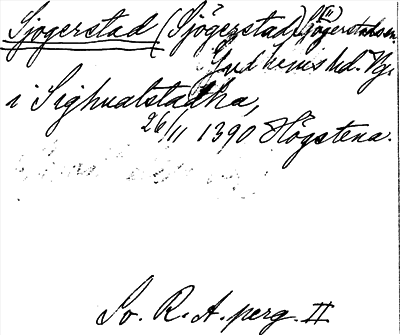 Sjögerstad (Sjögerstad) (Sjögerstadsom.
Gudhems hd. Vg.
i Sighualstadha,
26/11 1390 Högstena.
Sv. R. A. perg. II